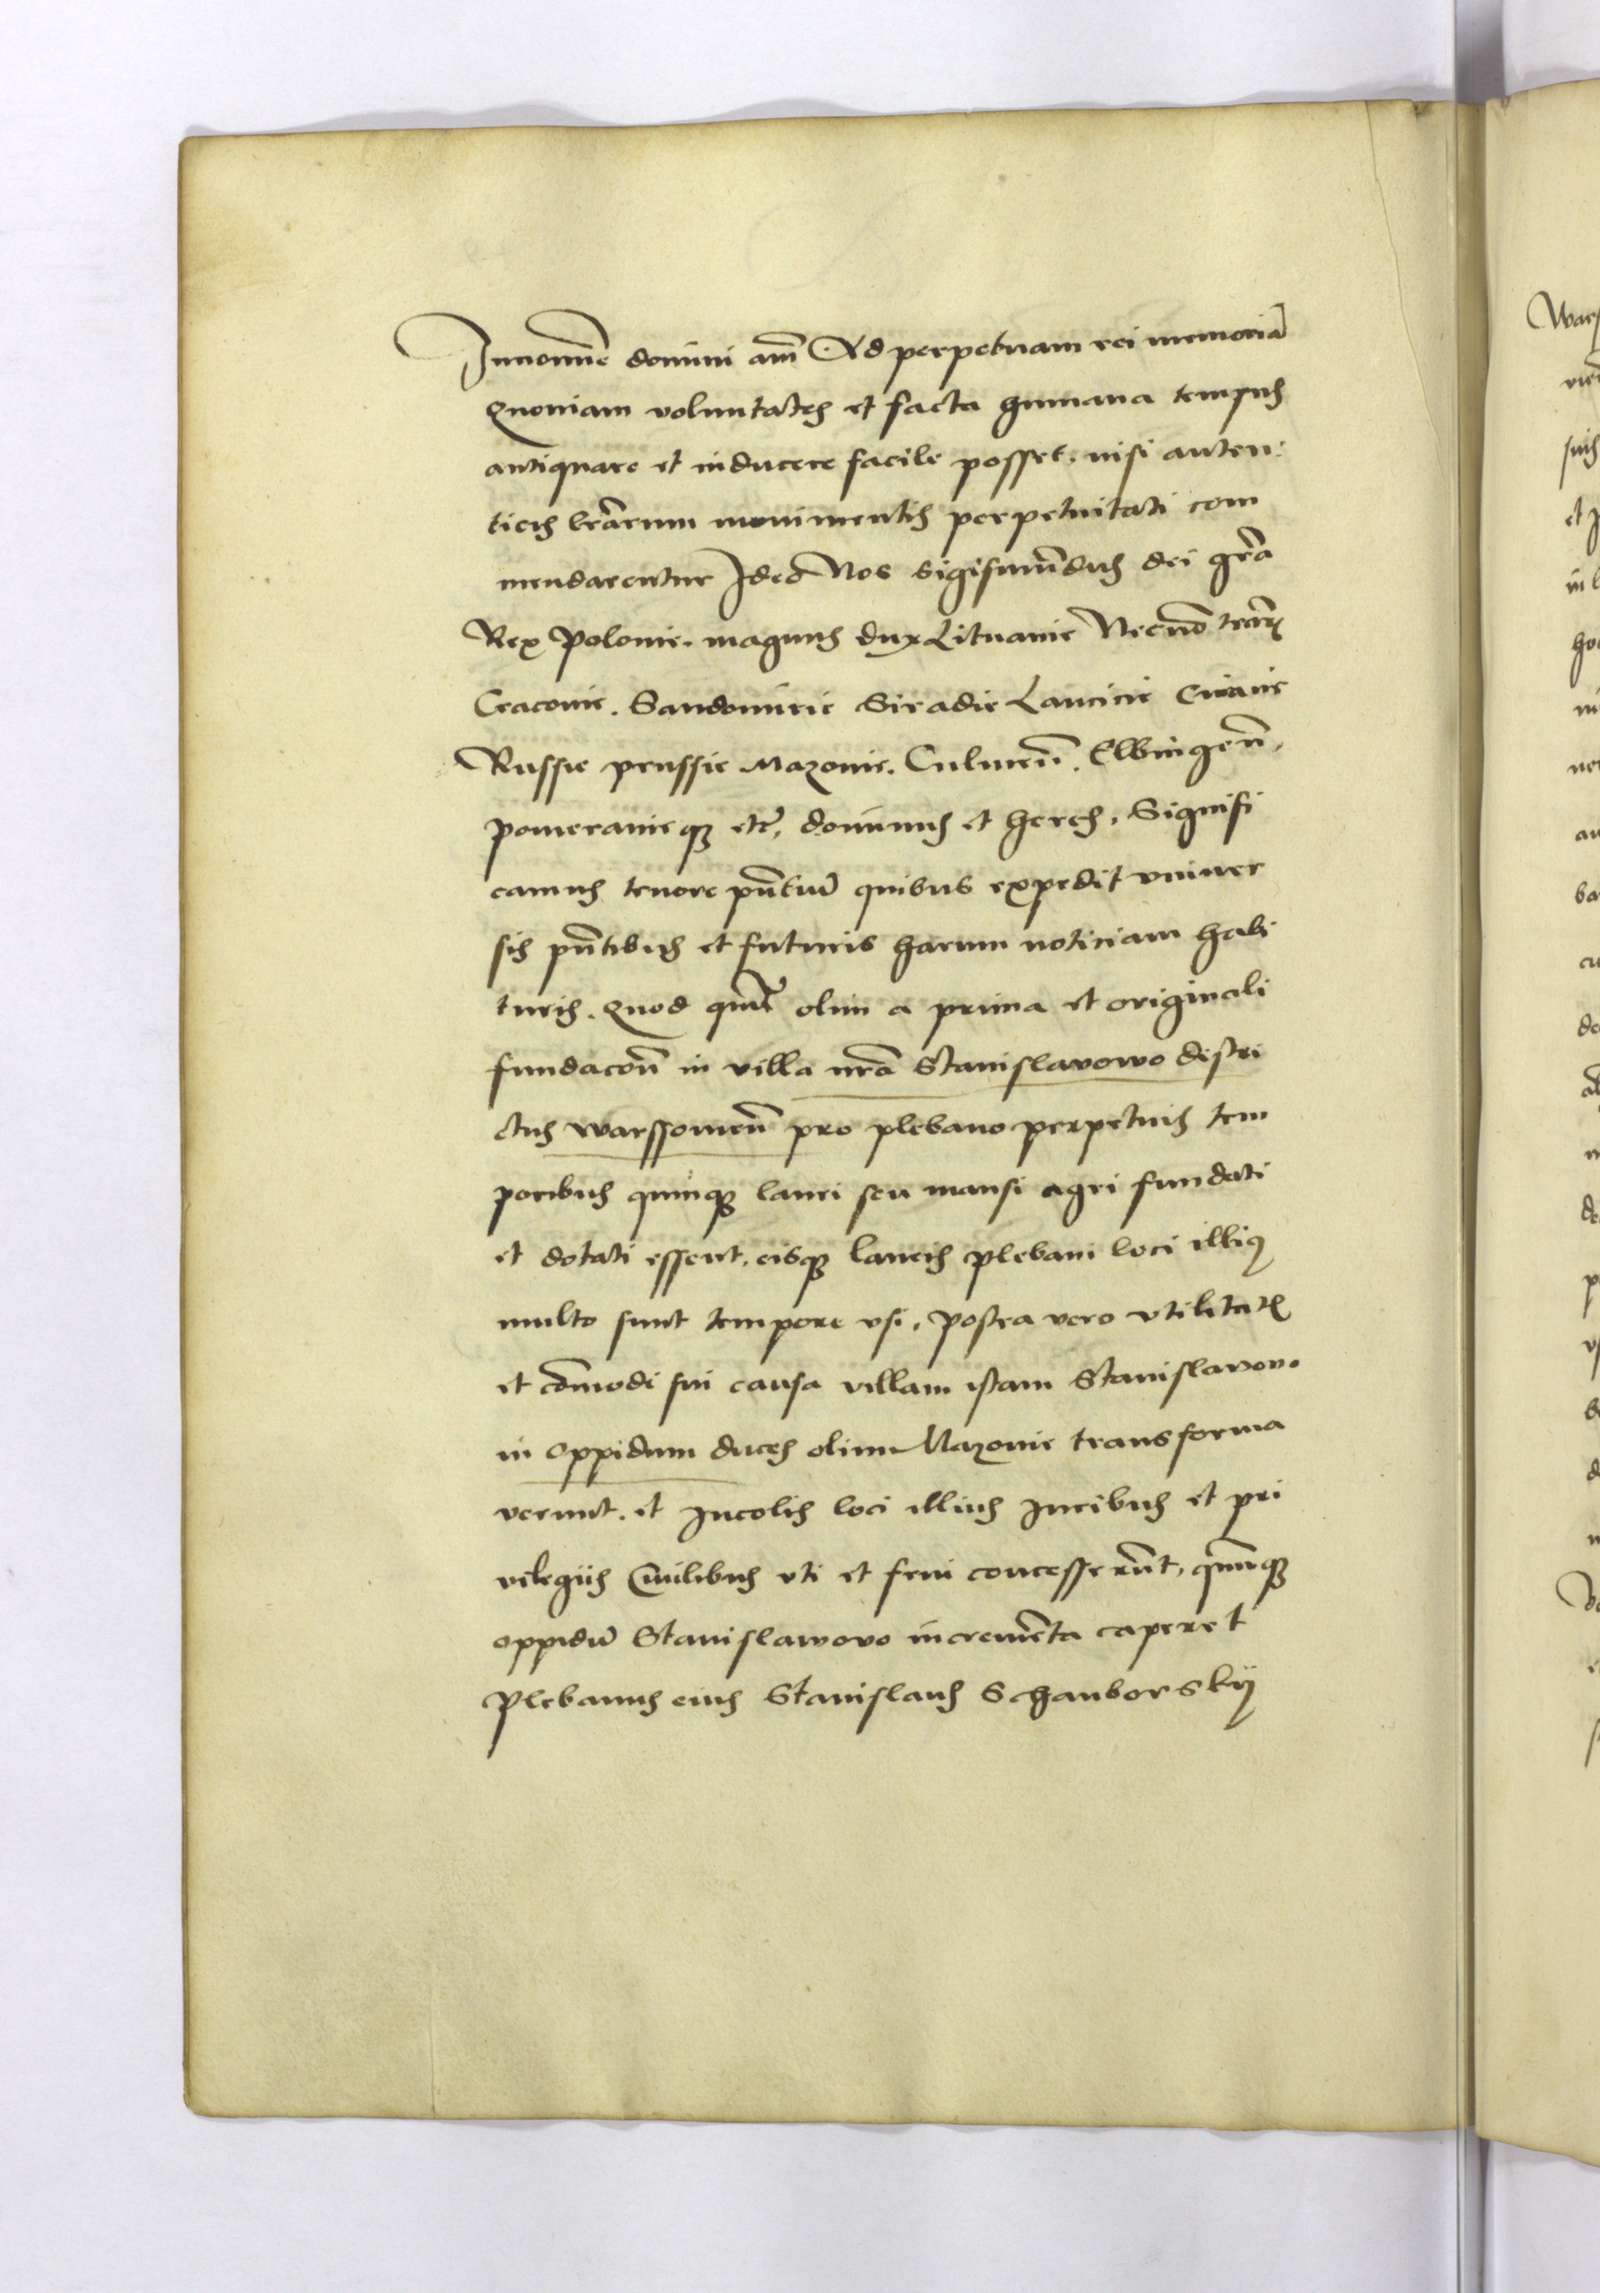 In nomine domini am̃ Ad perpetuam rei memoriã
Quoniam voluntates et facta humana tempus
antiquare et inducere facile posset, nisi auten:
ticis l̃rarum monimentis perpetuitati com
mendarentur Ideo Nos Sigismũdus dei gr̃a
Rex Polonie, magnus dux Lituanie Necnõ terrar̃
Cracovie, Sandomirie Siradie Lancicie Cuiavie
Russie prussie Mazovie, Culmeñ, Elbingeñ,
pomeranieq; etc̃, dominus et heres, Signifi
camus tenore p̃ntium̃ quibus expedit vniver
sis p̃ntibus et futuris harum noticiam habi
turis, Quod quĩt olim a prima et originali
fundacõn in villa nr̃a Stanislavowo distri
ctus warssovieñ pro plebano perpetuis tem
poribus quinq; lanei seu mansi agri fundati
et dotati essent, eisq; laneis plebani loci illi9
multo sunt tempore vsi, postea vero vtilitatis
et cõmodi sui causa villam istam Stanislavovo
in oppidum duces olim Mazovie transforma
verunt, et Incolis loci illius Iuribus et pri
vilegiis Civilibus vti et frui concesserũt, qũmq;
oppidũ Stanislawovo incremẽta caperet
Plebanus eius Stanislaus Schamborskÿ
Warss